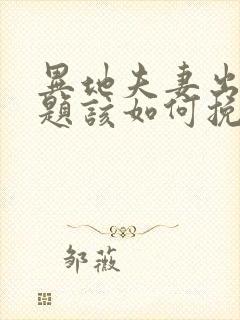 異地夫妻出
題該如何挽
邹薇